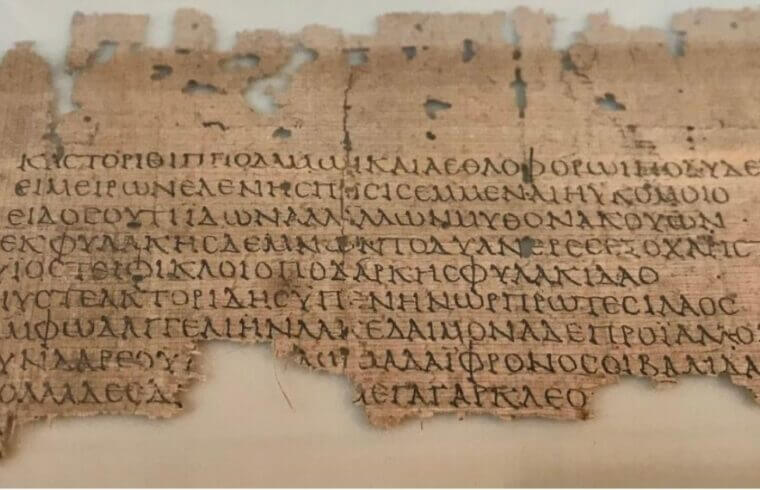 ΚΑΣΤΟΡΙΘΙΠΠΟΔΑΜΩΙΚΑΙΑΕΘΛΟΦΟΡΩΙΠΟΛΥΔΕ
ΕΙΜΕΙΡΩΝΕΛΕΝΗΣΠΟΣΙΣΕΜΜΕΝΑΙΗΥΚΟΜΟΙΟ
ΕΙΔΟΣΟΥΤΙΙΔΩΝΑΛΛΑΛΛΩΝΜΥΘΟΝΑΚΟΥΩΝ
ΕΚΦΥΛΑΚΗΣΔΕΜΝΩΝΤΟΔΥΑΝΕΡΕΣΕΞΟΧΑΡΙΣΤ
ΥΙΟΣΤΕΙΦΙΚΛΟΙΟΠΟΔΑΡΚΗΣΦΥΛΑΚΙΔΑΟ
ΗΥΣΤΕΑΚΤΟΡΙΔΗΣΥΠΕΡΗΝΩΡΠΡΩΤΕΣΙΛΑΟΣ
ΑΜΦΩΔΑΓΓΕΛΙΗΝΛΑΚΕΔΑΙΜΟΝΑΔΕΠΡΟΪΑΛΛΟ
ΥΝΔΑΡΕΟΥ ΜΑΔΑΙΦΡΟΝΟΣΟΙΒΑΛΙΔΑ
ΟΛΛΑΔΕΣΔ ΜΕΓΑΓΑΡΚΛΕΟ